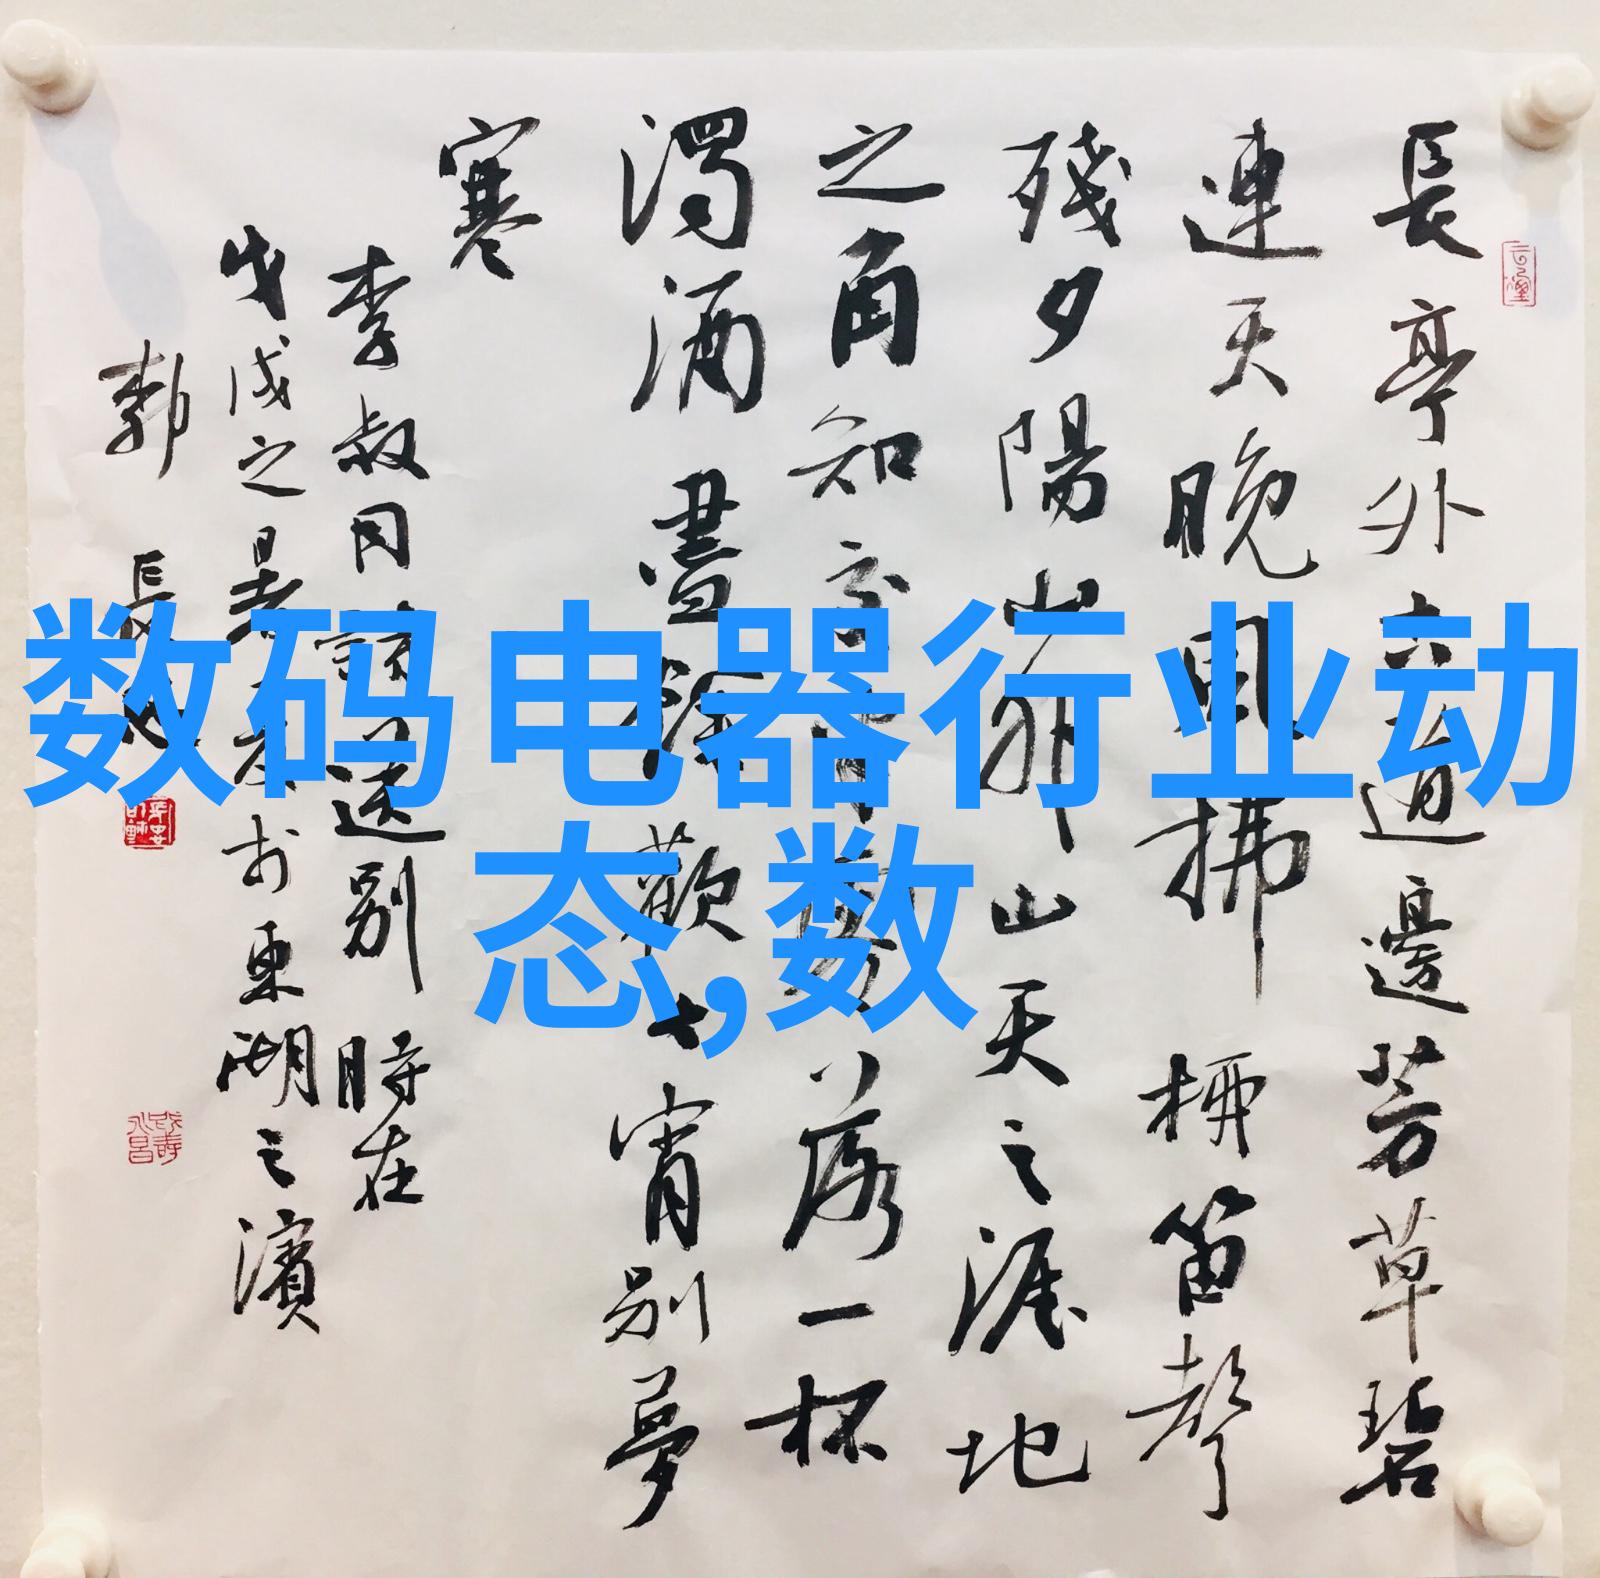 長亭外道邊芳草碧
連天晚風拂柳笛聲
殘夕陽山外山天之涯地
之角知交半零落一杯
濁酒盡餘歡今宵别夢
寒
李叔同詞送别 時在
戊戌之於東湖之濱
長
数码电器行业动
态,数